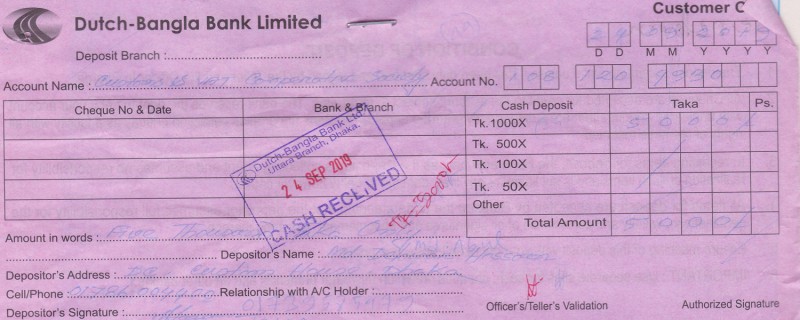 Dutch-Bangla Bank Limited
Customer C
24 09 2019
D D M M Y Y Y Y
Deposit Branch :
Account Name : Customs & Vat Cooperative Society Account No. 108 120 9930
Cheque No & Date Bank & Branch Cash Deposit Taka Ps.
Tk.1000X 5000/
Tk. 500X
Tk. 100X
Tk. 50X
Other
Total Amount 5000/
Dutch-Bangla Bank Ltd
Uttara Branch, Dhaka.
24 SEP 2019
CASH RECEIVED
Amount in words : Five Thousand
Depositor's Name :
Depositor's Address : House Dhaka
Cell/Phone : Relationship with A/C Holder :
Depositor's Signature :
Officer's/Teller's Validation
Authorized Signature